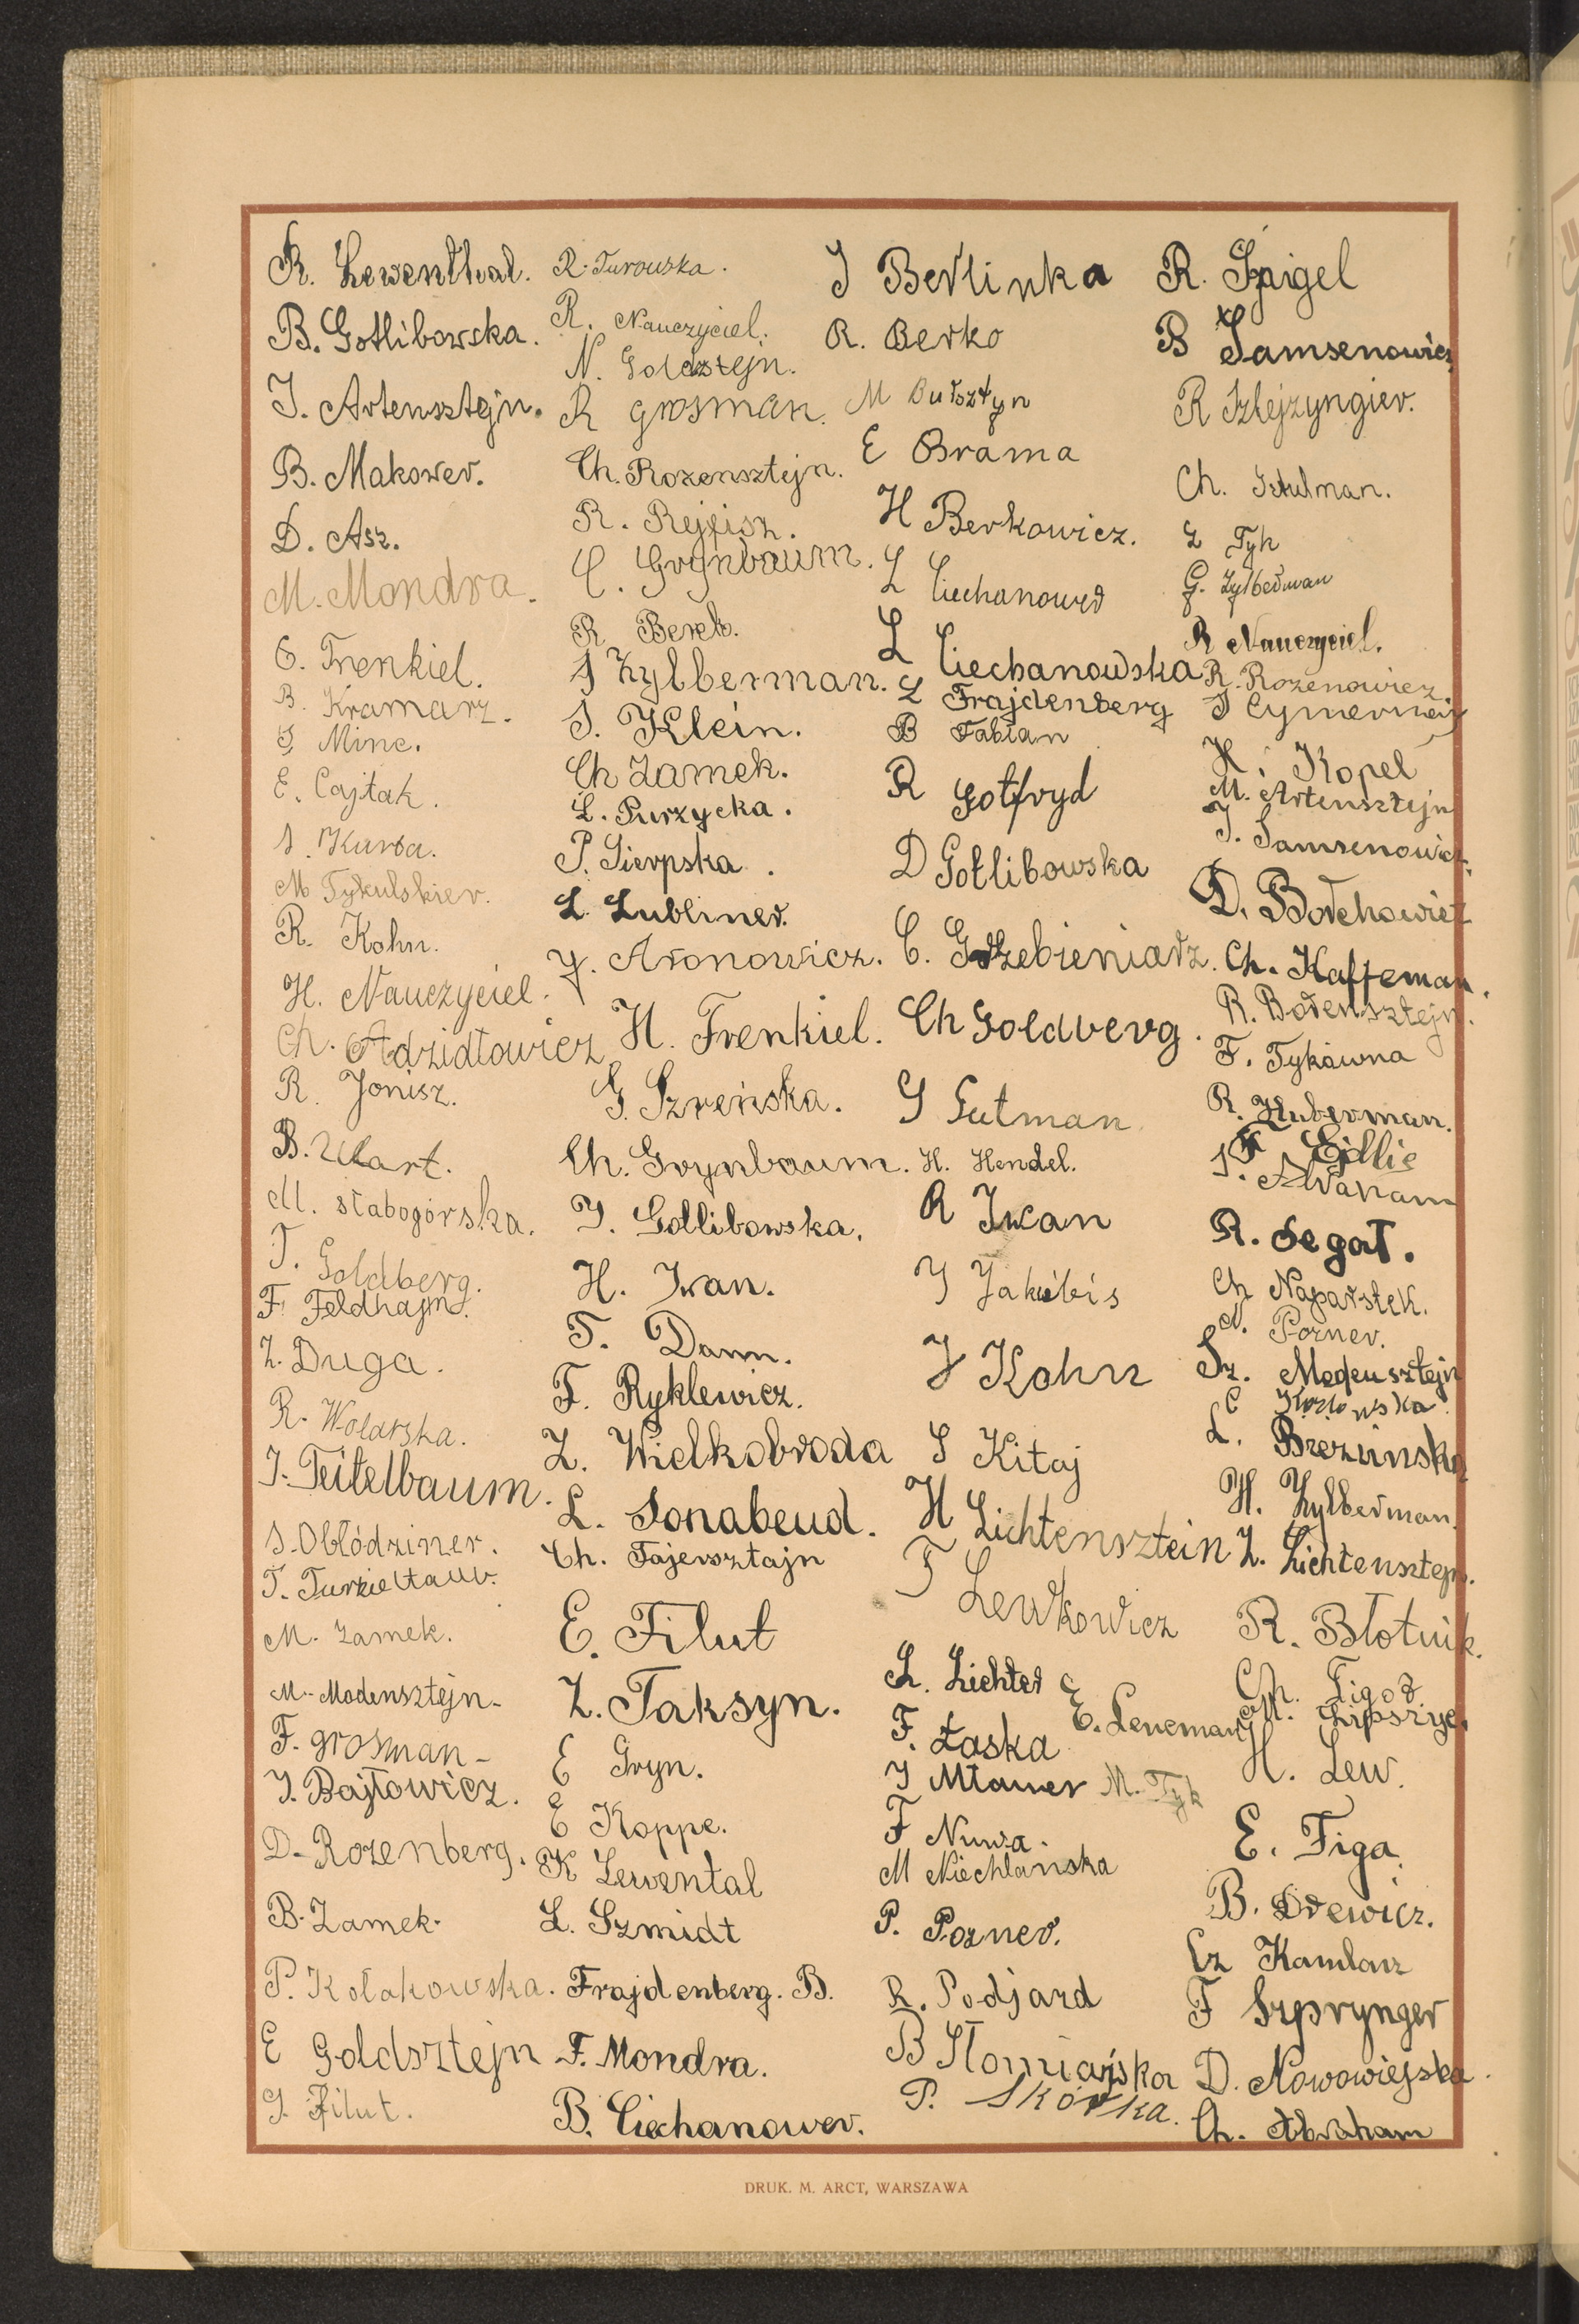 R. Lewenthal.
B. Gotlibowska.
I. Artensztejn.
B. Makower.
D. Asz.
M. Mondra.
G. Frenkiel.
B. Kramarz.
Minc.
E. Cajtak.
Kurba.
M Tykulskier.
R. Kohn.
H. Nauczyciel.
Ch. Adzidłowicz
R. Jonisz.
B.
M. Słabogórska.
T. Goldberg.
F. Feldhajm.
Z. Duga.
R. Wolarska.
J. Teitelbaum.
S. Obłódziner.
T.
M. Zamek.
M. Modensztejn.
F. Grosman
I. Bajtowicz.
D. Rozenberg.
B. Zamek.
P. Kołakowska.
E Goldsztejn
Filut.
R. Turowska.
R. Nauczyciel.
N. Goldsztejn.
R Grosman.
Ch. Rozensztejn.
R. Rejfisz.
C. Grynbaum.
R. Berk.
S Zylberman.
S. Klein.
Ch Zamek.
L. Purzycka.
P. Sierpska.
L. Lubliner.
J. Aronowicz.
H. Frenkiel.
G. Szreńska.
Ch. Grynbaum.
I. Gotlibowska.
H. Iwan.
T. Dawn.
F. Ryklewicz.
Z. Wielkobroda
L. Sonabend.
Ch. Fajersztajn
E. Filut
Z. Taksyn.
E Gryn.
E Koppe.
K Lewental
L. Szmidt
Frajdenberg. B.
F. Mondra.
B. Ciechanower.
J Berlinka
R. Berko
M Bursztyn
E Brama
H Berkowicz.
L Ciechanower
L Ciechanowska
L Frajdenberg
B Fabian
R Gotfryd
D Gotlibowska
C. Grzebieniarz.
Ch Goldberg.
G Gutman
H. Hendel.
R Iwan
J Jakubis
J Kohn
S Kitaj
H Lichtensztein
F Lewkowicz
L. Lichter
E. Leneman
F. Łaska
J Mławer
M. Tyk
F Nuwa.
M Niechlańska
P. Pozner.
R. Podjazd
B Słomiańska
P. Skórka.
R. Szpigel
B Samsenowicz
R Szlejzyngier.
Ch. Sztulman.
Z Tyk
G. Zylberman
R Nauczyciel.
R. Rozenowicz
S Cymerman
H. Kopel
M. Artensztejn
J. Samsenowicz
D. Borchowicz
Ch. Kaffeman.
R. Borensztejn.
F. Tykówna
R. Huberman.
F Ejdlic
J. Awaram
R. Segał.
Ch Naparstek.
N. Pozner.
Sz. Modensztejn
C Kozłowska
L. Brezińska
H. Zylberman.
Z. Lichtensztejn.
R. Błotnik.
Ch. Figor
M. Lipszyc.
H. Lew.
E. Figa.
B. Drewicz.
Cz Kamlarz
F Szprynger
D. Nowowiejska.
Ch. Abraham
DRUK. M. ARCT, WARSZAWA